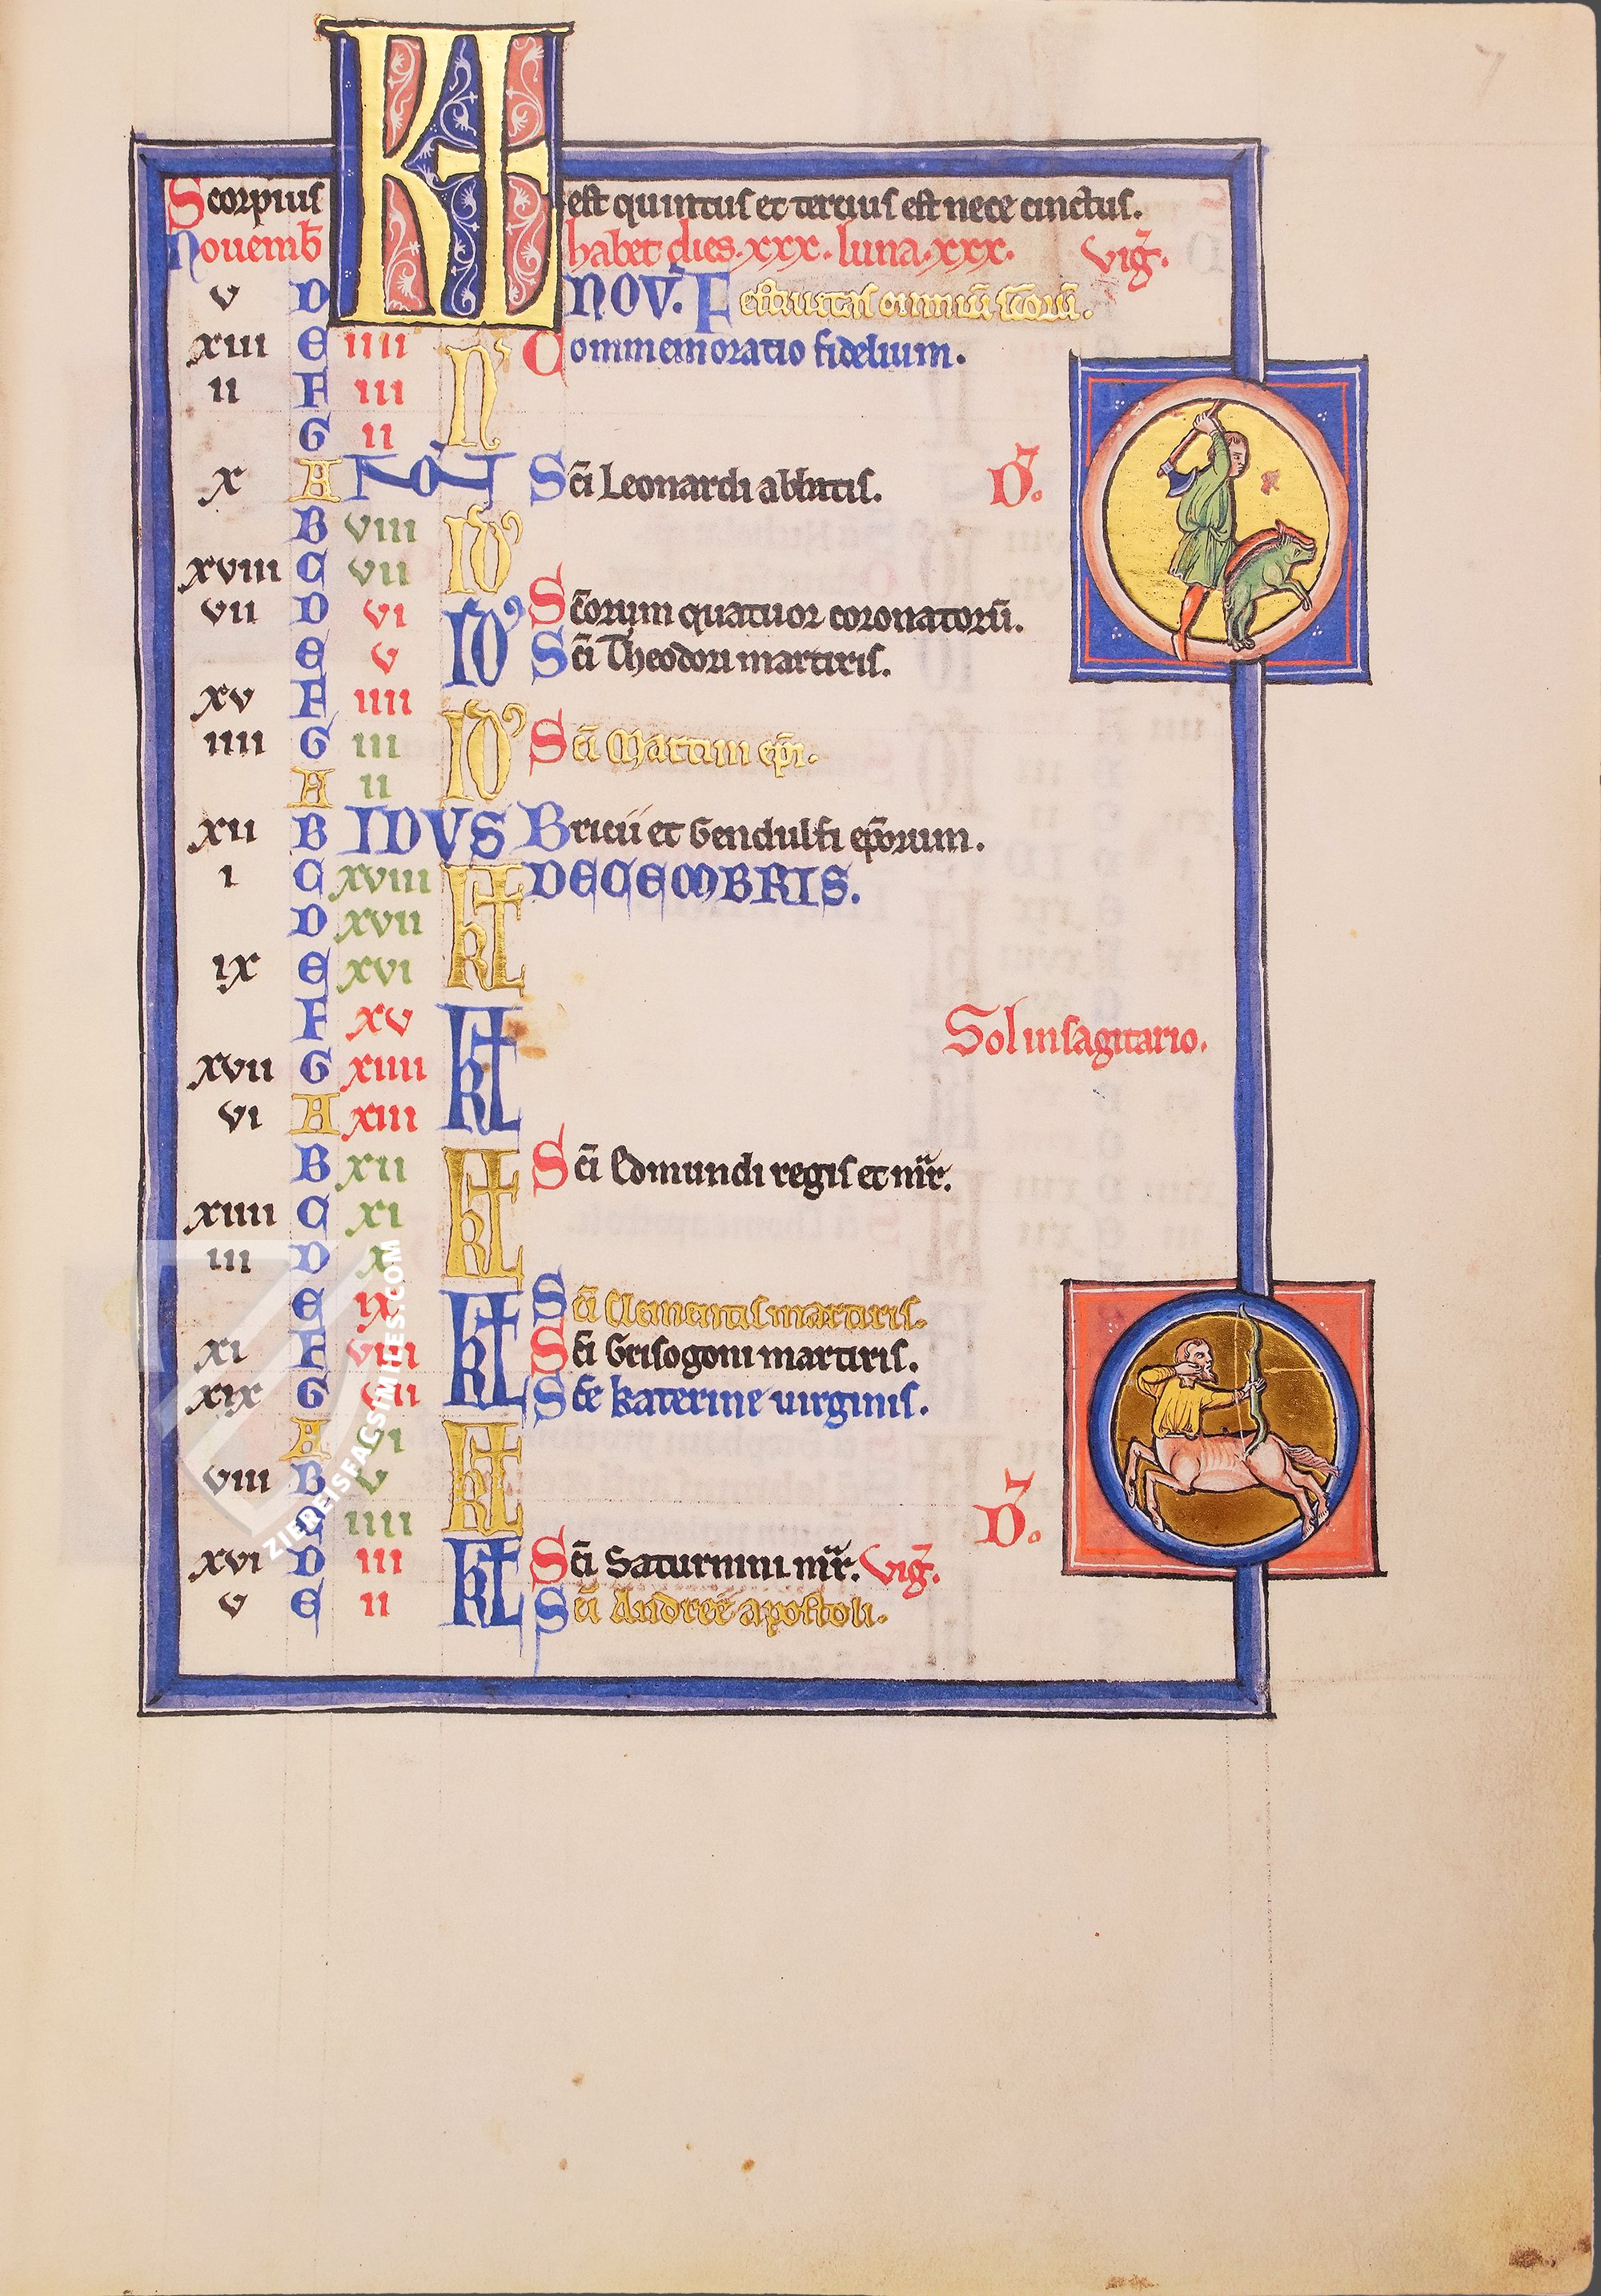 7
Scorpius KL est quintus et tercius est nece cinctus.
Nouemb habet dies .xxx. luna .xxx. vig̃.
v D NOV̄. Festiuitas omniū sc̄orū.
xiii E iiii N' Commemoratio fidelium.
ii F iii
G ii
x A NON̄ Sc̄i Leonardi abbatis. D'.
B viii ID'
xviii C vii
vii D vi ID' Sc̄orum quatuor coronatorū.
E v Sc̄i Theodori martiris.
xv F iiii
iiii G iii ID' Sc̄i Martini ep̄i.
A ii
xii B IDVS Bricii et Gendulfi ep̄orum.
i C xviii KL DECEMBRIS.
D xvii
ix E xvi KL
F xv KL
xvii G xiiii Sol in sagitario.
vi A xiii KL
B xii KL Sc̄i Edmundi regis et mr̄.
xiiii C xi
iii D x KL
E ix KL Sc̄i Clementis martiris.
xi F viii Sc̄i Grisogoni martiris.
xix G vii KL Sc̄e katerine uirginis.
A vi KL
viii B v
C iiii KL D'.
xvi D iii KL Sc̄i Saturnini mr̄. vig̃.
v E ii KL Sc̄i Andree apostoli.
ZIEREISFACSIMILES.COM